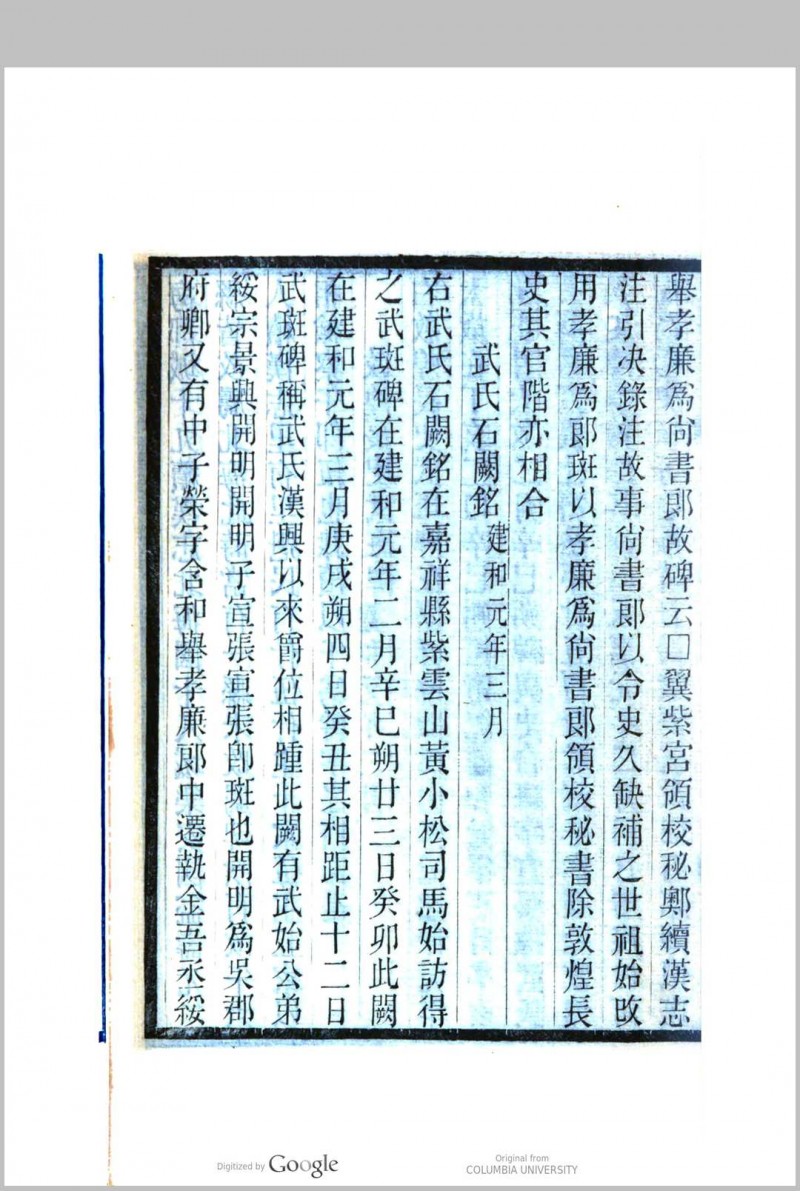 舉孝廉爲尙書郞故碑云□翼紫宮領校秘鄭續漢志
注引决錄注故事尙書郞以令史久缺補之世祖始改
用孝廉爲郞斑以孝廉爲尙書郞領校秘書除敦煌長
史其官階亦相合
武氏石闕銘 建和元年三月
右武氏石闕銘在嘉祥縣紫雲山黃小松司馬始訪得
之武斑碑在建和元年二月辛巳朔廿三日癸卯此闕
在建和元年三月庚戌朔四日癸丑其相距止十二日
武斑碑稱武氏漢興以來爵位相踵此闕有武始公弟
綏宗景興開明開明子宣張宣張卽斑也開明爲吳郡
府卿又有中子榮字含和舉孝廉郞中遷執金吾丞綏
Digitized by Google
Original from
COLUMBIA UNIVERSITY